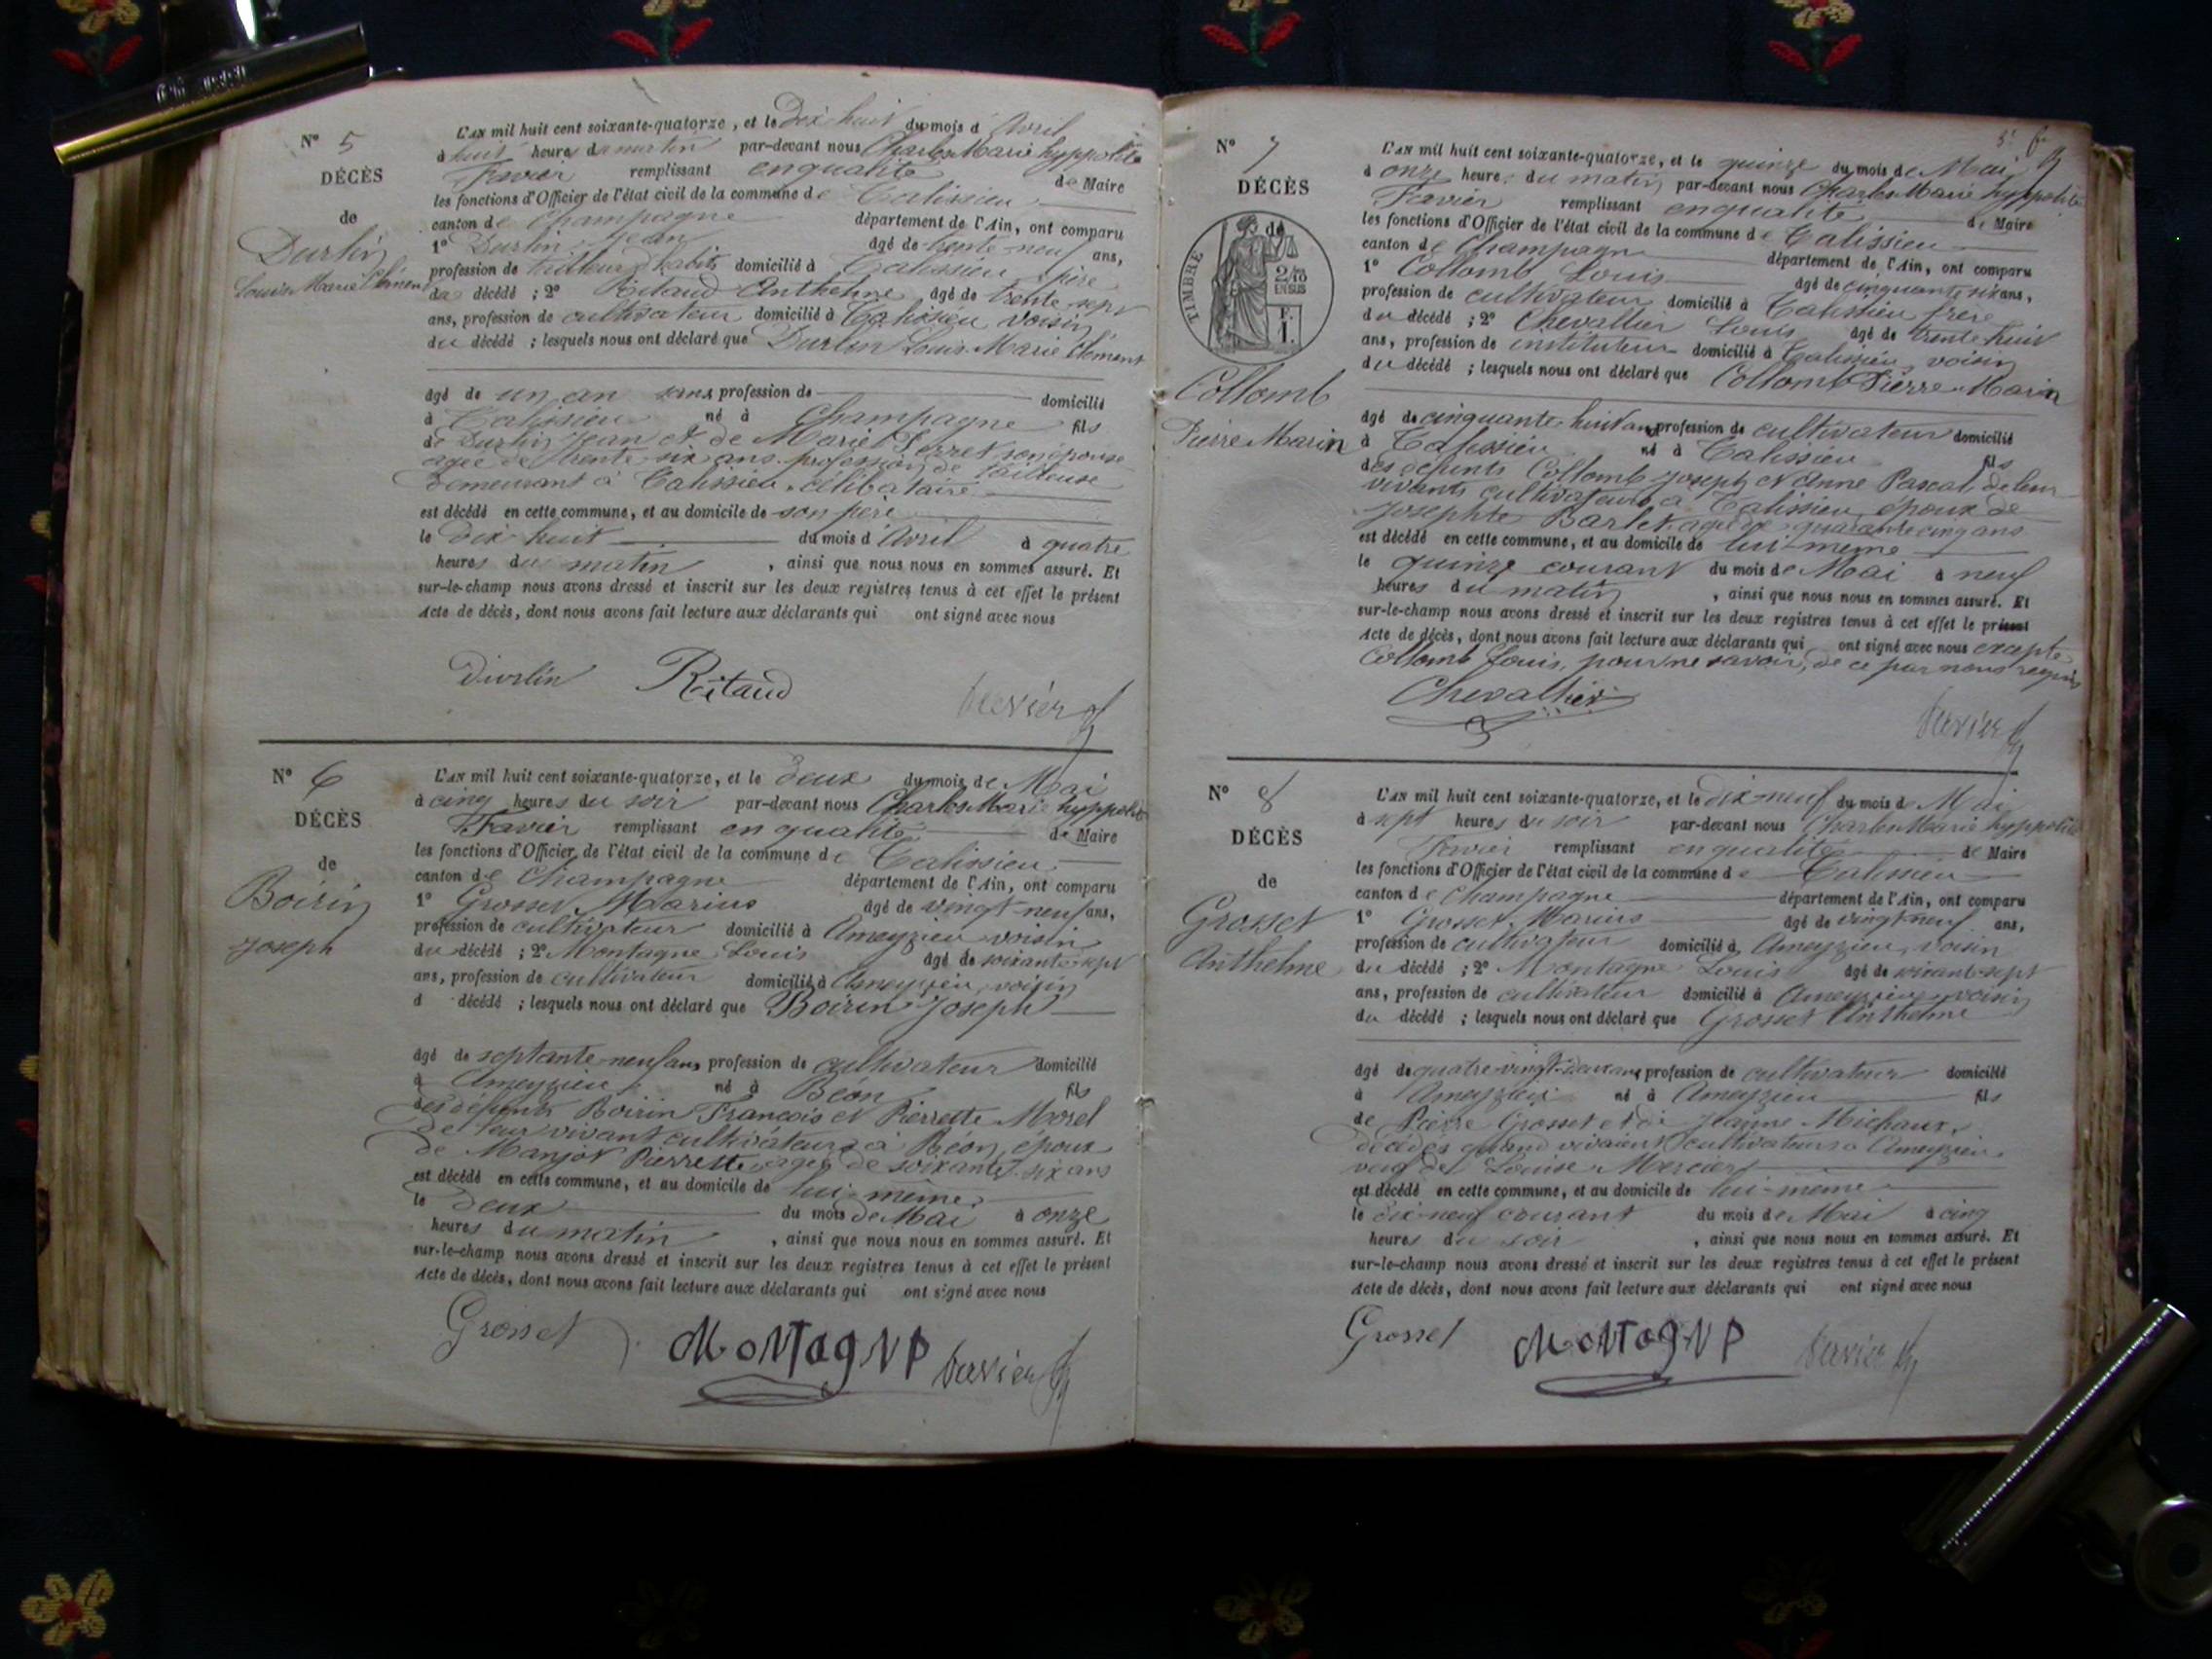 N° 5
DÉCÈS
de
Durlin
Louis Marie Clément
L'AN mil huit cent soixante-quatorze, et le Dix huit du mois d'Avril
à huit heures du matin par-devant nous Charles Marie hyppolite
Favier remplissant en qualité de Maire
les fonctions d'Officier de l'état civil de la commune de Talissieu
canton de Champagne département de l'Ain, ont comparu
1° Durlin Jean âgé de trente neuf ans,
profession de tailleur d'habits domicilié à Talissieu père
du décédé ; 2° Ritaud Anthelme âgé de trente sept
ans, profession de cultivateur domicilié à Talissieu voisin
du décédé ; lesquels nous ont déclaré que Durlin Louis Marie Clément
âgé de un an sans profession de domicilié
à Talissieu né à Champagne fils
de Durlin Jean et de Marie Perret son épouse
agée de trente six ans profession de tailleuse
demeurant à Talissieu, célibataire
est décédé en cette commune, et au domicile de son père
le dix huit du mois d'Avril à quatre
heures du matin , ainsi que nous nous en sommes assuré. Et
sur-le-champ nous avons dressé et inscrit sur les deux registres tenus à cet effet le présent
Acte de décès, dont nous avons fait lecture aux déclarants qui ont signé avec nous
Durlin Ritaud Favier
N° 6
DÉCÈS
de
Boirin
Joseph
L'AN mil huit cent soixante-quatorze, et le deux du mois de Mai
à cinq heures du soir par-devant nous Charles Marie hyppolite
Favier remplissant en qualité de Maire
les fonctions d'Officier de l'état civil de la commune de Talissieu
canton de Champagne département de l'Ain, ont comparu
1° Grosset Marius âgé de vingt neuf ans,
profession de cultivateur domicilié à Ameyzieu voisin
du décédé ; 2° Montagne Louis âgé de soixante sept
ans, profession de cultivateur domicilié à Ameyzieu, voisin
d décédé ; lesquels nous ont déclaré que Boirin Joseph
âgé de septante neuf ans profession de cultivateur domicilié
à Ameyzieu né à Béon fils
des défunts Boirin François et Pierrette Morel
de leur vivant cultivateurs à Béon, époux
de Manjot Pierrette agée de soixante six ans
est décédé en cette commune, et au domicile de lui-même
le deux du mois de Mai à onze
heures du matin , ainsi que nous nous en sommes assuré. Et
sur-le-champ nous avons dressé et inscrit sur les deux registres tenus à cet effet le présent
Acte de décès, dont nous avons fait lecture aux déclarants qui ont signé avec nous
Grosset MoNTagNP Favier
N° 7
DÉCÈS
de
TIMBRE
2/10
EN SUS
F.
1.
Collomb
Pierre Marin
L'AN mil huit cent soixante-quatorze, et le quinze du mois de Mai
à onze heures du matin par-devant nous Charles Marie hyppolite
Favier remplissant en qualité de Maire
les fonctions d'Officier de l'état civil de la commune de Talissieu
canton de Champagne département de l'Ain, ont comparu
1° Collomb Louis âgé de cinquante six ans,
profession de cultivateur domicilié à Talissieu frère
du décédé ; 2° Chevallier Louis âgé de trente huit
ans, profession de instituteur domicilié à Talissieu, voisin
du décédé ; lesquels nous ont déclaré que Collomb Pierre Marin
âgé de cinquante huit ans profession de cultivateur domicilié
à Talissieu né à Talissieu fils
des défunts Collomb Joseph et Anne Pascal, de leur
vivants cultivateurs à Talissieu, époux de
Josephte Barlet agée de quarante cinq ans
est décédé en cette commune, et au domicile de lui-même
le quinze courant du mois de Mai à neuf
heures du matin , ainsi que nous nous en sommes assuré. Et
sur-le-champ nous avons dressé et inscrit sur les deux registres tenus à cet effet le présent
Acte de décès, dont nous avons fait lecture aux déclarants qui ont signé avec nous excepté
Collomb Louis, pour ne savoir, de ce par nous requis
Chevallier Favier
N° 8
DÉCÈS
de
Grosset
Anthelme
L'AN mil huit cent soixante-quatorze, et le dix-neuf du mois de Mai
à sept heures du soir par-devant nous Charles Marie hyppolite
Favier remplissant en qualité de Maire
les fonctions d'Officier de l'état civil de la commune de Talissieu
canton de Champagne département de l'Ain, ont comparu
1° Grosset Marius âgé de vingt neuf ans,
profession de cultivateur domicilié à Ameyzieu, voisin
du décédé ; 2° Montagne Louis âgé de soixante sept
ans, profession de cultivateur domicilié à Ameyzieu voisin
du décédé ; lesquels nous ont déclaré que Grosset Anthelme
âgé de quatre-vingt-deux ans profession de cultivateur domicilié
à Ameyzieu né à Ameyzieu fils
de Pierre Grosset et de Jeanne Michaux,
décédés quand vivaient cultivateurs à Ameyzieu
veuf de Louise Mercier
est décédé en cette commune, et au domicile de lui-même
le dix-neuf courant du mois de Mai à cinq
heures du soir , ainsi que nous nous en sommes assuré. Et
sur-le-champ nous avons dressé et inscrit sur les deux registres tenus à cet effet le présent
Acte de décès, dont nous avons fait lecture aux déclarants qui ont signé avec nous
Grosset MoNTagNP Favier